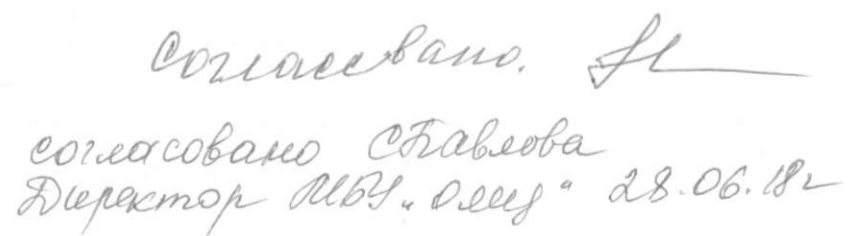 Согласовано.
согласовано СПавлова
Директор МБУ „ОМЦ“ 28.06.18г